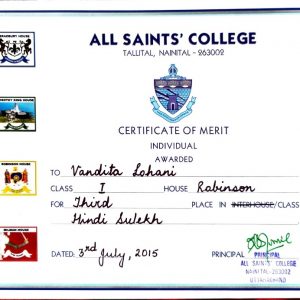 BRADBURY HOUSE
ROBINSON HOUSE
ALL SAINTS' COLLEGE
TALLITAL, NAINITAL - 263002
CERTIFICATE OF MERIT
INDIVIDUAL
AWARDED
TO Vandita Lohani
CLASS I HOUSE Robinson
FOR Third PLACE IN INTERHOUSE/CLASS
Hindi Sulekh
DATED: 3rd July, 2015 PRINCIPAL
PRINCIPAL
ALL SAINTS' COLLEGE
NAINITAL-263002
UTTARAKHAND